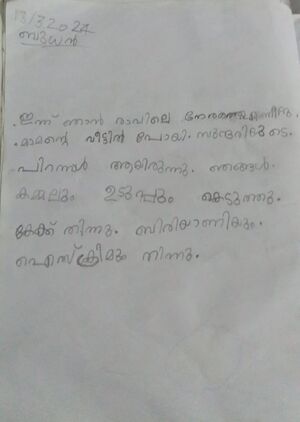 13/3.2024
ബുധൻ
. ഇന്ന് ഞാൻ രാവിലെ നേരത്തെ എണീറ്റു.
. മാമന്റെ വീട്ടിൽ പോയി. സുന്ദരിയുടെ
പിറന്നാൾ ആയിരുന്നു. ഞങ്ങൾ.
കമ്മലും ഉടുപ്പും കെടുത്തു.
കേക്ക് തിന്നു. ബിരിയാണിയും.
ഐസ്ക്രീമും തിന്നു.